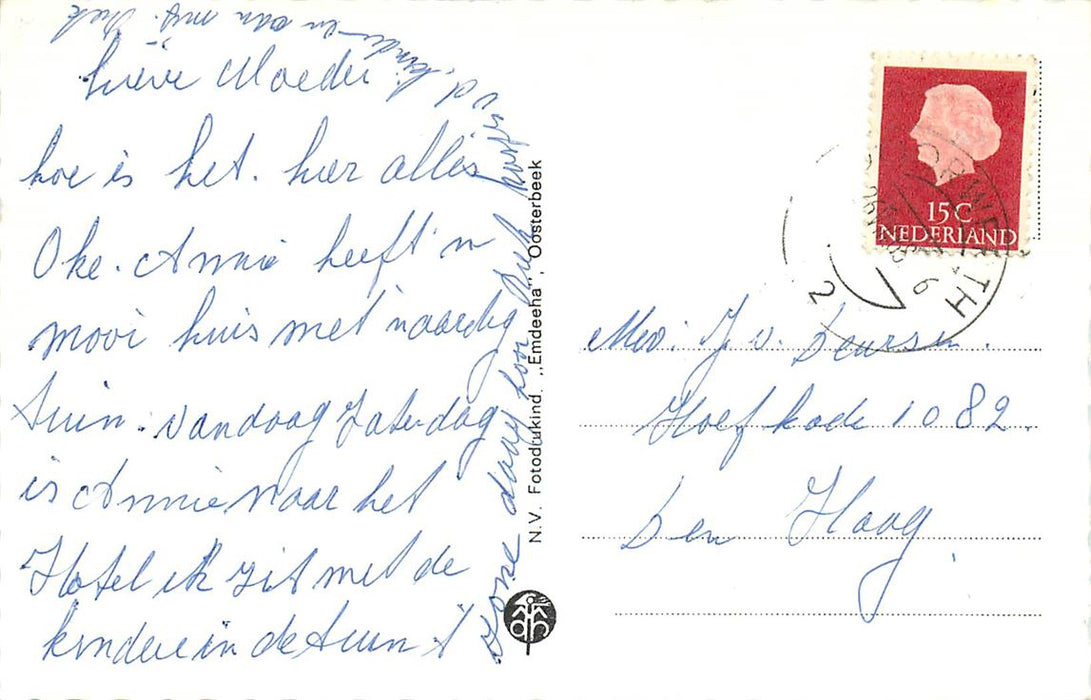 lieve Moeder
hoe is het. hier alles
Oke. Annie heeft 'n
mooi huis met naardig
tuin. vandaag Zaterdag
is Annie naar het
Hotel ik zit met de
kindere in de tuin 't
daag kust v d. kinde en van mij.
N.V. Fotodrukind. „Emdeeha", Oosterbeek
15 C
NEDERLAND
2
6
Mev. J. v. Deursen.
Hoefkade 1082.
Den Haag